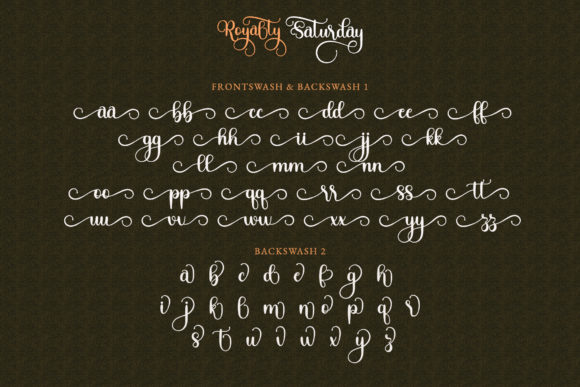 Royalty Saturday
FRONTSWASH & BACKSWASH 1
aa bb cc dd ee ff
gg hh ii jj kk
ll mm nn
oo pp qq rr ss tt
uu vv wu xx yy zz
BACKSWASH 2
a b c d e f g h
i j k l m n o p q r
s t u v w x y z